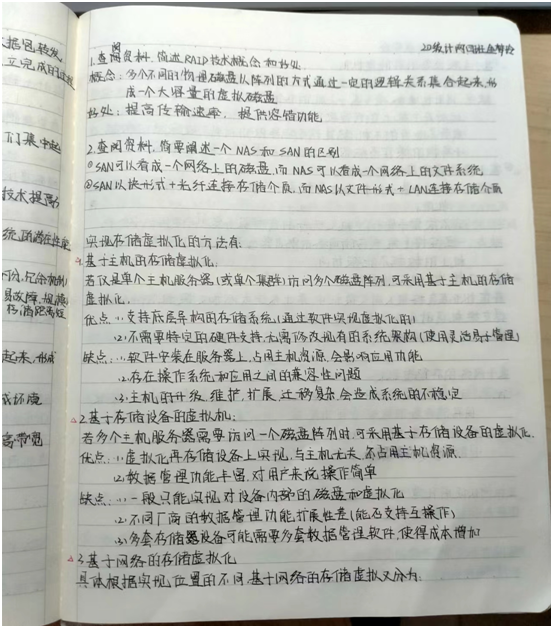 据冠,转发
立完成的过程
们集中起
技术提高
易故障,提高
起来,形成
成环境
高带宽
20级计网
1.查阅资料,简述RAID技术概念和好处.
概念:多个不同的物理磁盘以阵列的方式通过一定的逻辑关系集合起来,形
成一个大容量的虚拟磁盘
好处:提高传输速率,提供容错功能
2.查阅资料,简要阐述一个NAS和SAN的区别
①SAN可以看成一个网络上的磁盘,而NAS可以看成一个网络上的文件系统
②SAN以块形式+光纤连接存储介质,而NAS以文件形式+LAN连接存储介质
实现存储虚拟化的方法有:
1.基于主机的存储虚拟化:
若仅是单个主机服务器(或单个集群)访问多个磁盘阵列,可采用基于主机的存储
虚拟化.
优点:(1)支持底层异构的存储系统(通过软件实现虚拟化的)
(2)不需要特定的硬件支持,无需修改现有的系统架构(使用灵活易于管理)
缺点:(1)软件安装在服务器上,占用主机资源,会影响应用功能
(2)存在操作系统和应用之间的兼容性问题
(3)主机的升级、维护、扩展、迁移复杂,会造成系统的不稳定
2.基于存储设备的虚拟机:
若多个主机服务器需要访问一个磁盘阵列时,可采用基于存储设备的虚拟化.
优点:(1)虚拟化再存储设备上实现,与主机无关,不占用主机资源.
(2)数据管理功能丰富,对用户来说,操作简单
缺点:(1)一般只能实现对设备内部的磁盘和虚拟化
(2)不同厂商的数据管理功能,扩展性差(能否支持互操作)
(3)多套存储设备可能需要多套数据管理软件,使得成本增加
3.基于网络的存储虚拟化
具体根据实现位置的不同,基于网络的存储虚拟又分为: